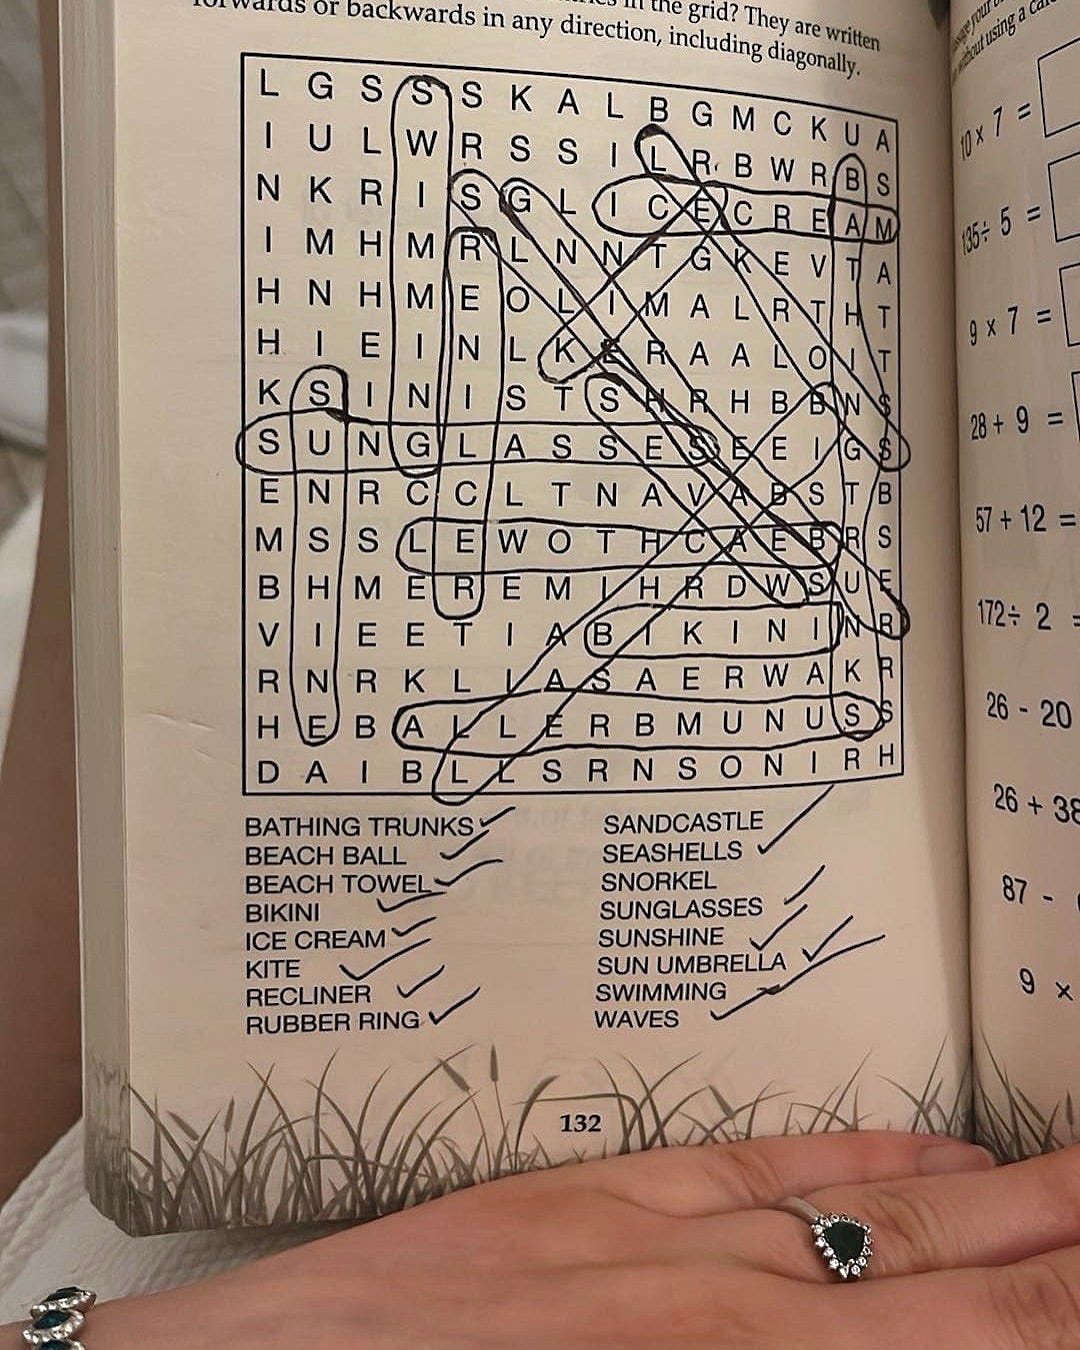 in the grid? They are written
forwards or backwards in any direction, including diagonally.
L G S S S K A L B G M C K U A
I U L W R S S I L R B W R B S
N K R I S G L I C E C R E A M
I M H M R L N N T G K E V T A
H N H M E O L I M A L R T H T
H I E I N L K E R A A L O I T
K S I N I S T S H R H B B N S
S U N G L A S S E S E E I G S
E N R C C L T N A V A B S T B
M S S L E W O T H C A E B R S
B H M E R E M I H R D W S U E
V I E E T I A B I K I N I N R
R N R K L I A S A E R W A K R
H E B A L L E R B M U N U S S
D A I B L L S R N S O N I R H
BATHING TRUNKS
BEACH BALL
BEACH TOWEL
BIKINI
ICE CREAM
KITE
RECLINER
RUBBER RING
SANDCASTLE
SEASHELLS
SNORKEL
SUNGLASSES
SUNSHINE
SUN UMBRELLA
SWIMMING
WAVES
132
your
without using a
10 x 7 =
135÷ 5 =
9 x 7 =
28 + 9 =
57 + 12 =
172÷ 2 =
26 - 20
26 + 38
87 -
9 x